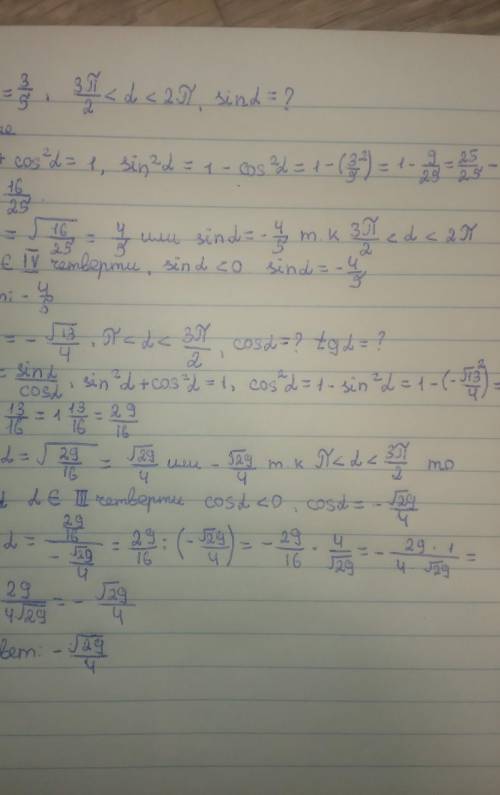 = 3/5, 3π/2 < α < 2π, sinα = ?
+ cos²α = 1, sin²α = 1 - cos²α = 1 - (3²/5) = 1 - 9/25 = 25/25 -
16/25
= √16/25 = 4/5 или sinα = - 4/5 т.к 3π/2 < α < 2π
∈ IV четверти, sinα < 0 sinα = - 4/5
: - 4/5
= - √13/4, π < α < 3π/2, cosα = ? tgα = ?
= sinα/cosα, sin²α + cos²α = 1, cos²α = 1 - sin²α = 1 - (- √13²/4) =
13/16 = 1 13/16 = 29/16
α = √29/16 = √29/4 или - √29/4 т.к π < α < 3π/2 то
α ∈ III четверти cosα < 0, cosα = - √29/4
α = 29/16 / - √29/4 = 29/16 : (- √29/4) = - 29/16 · 4/√29 = - 29 · 1/4 · √29 =
29/4√29 = - √29/4
вет: - √29/4